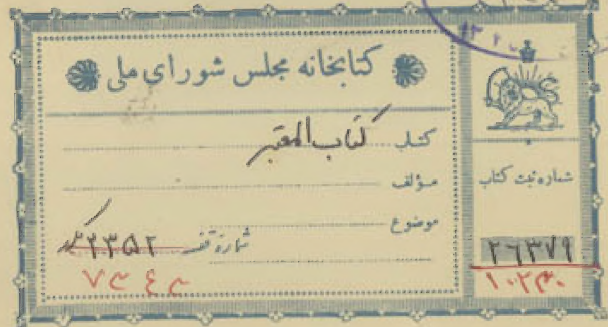 کتابخانه مجلس شورای ملی
کتاب کتاب المعتبر
مؤلف
موضوع
شماره قفسه ۲۳۵۲
۷۳۴۳
شماره ثبت کتاب
۲۶۳۷۹
۱۰۲۳۰